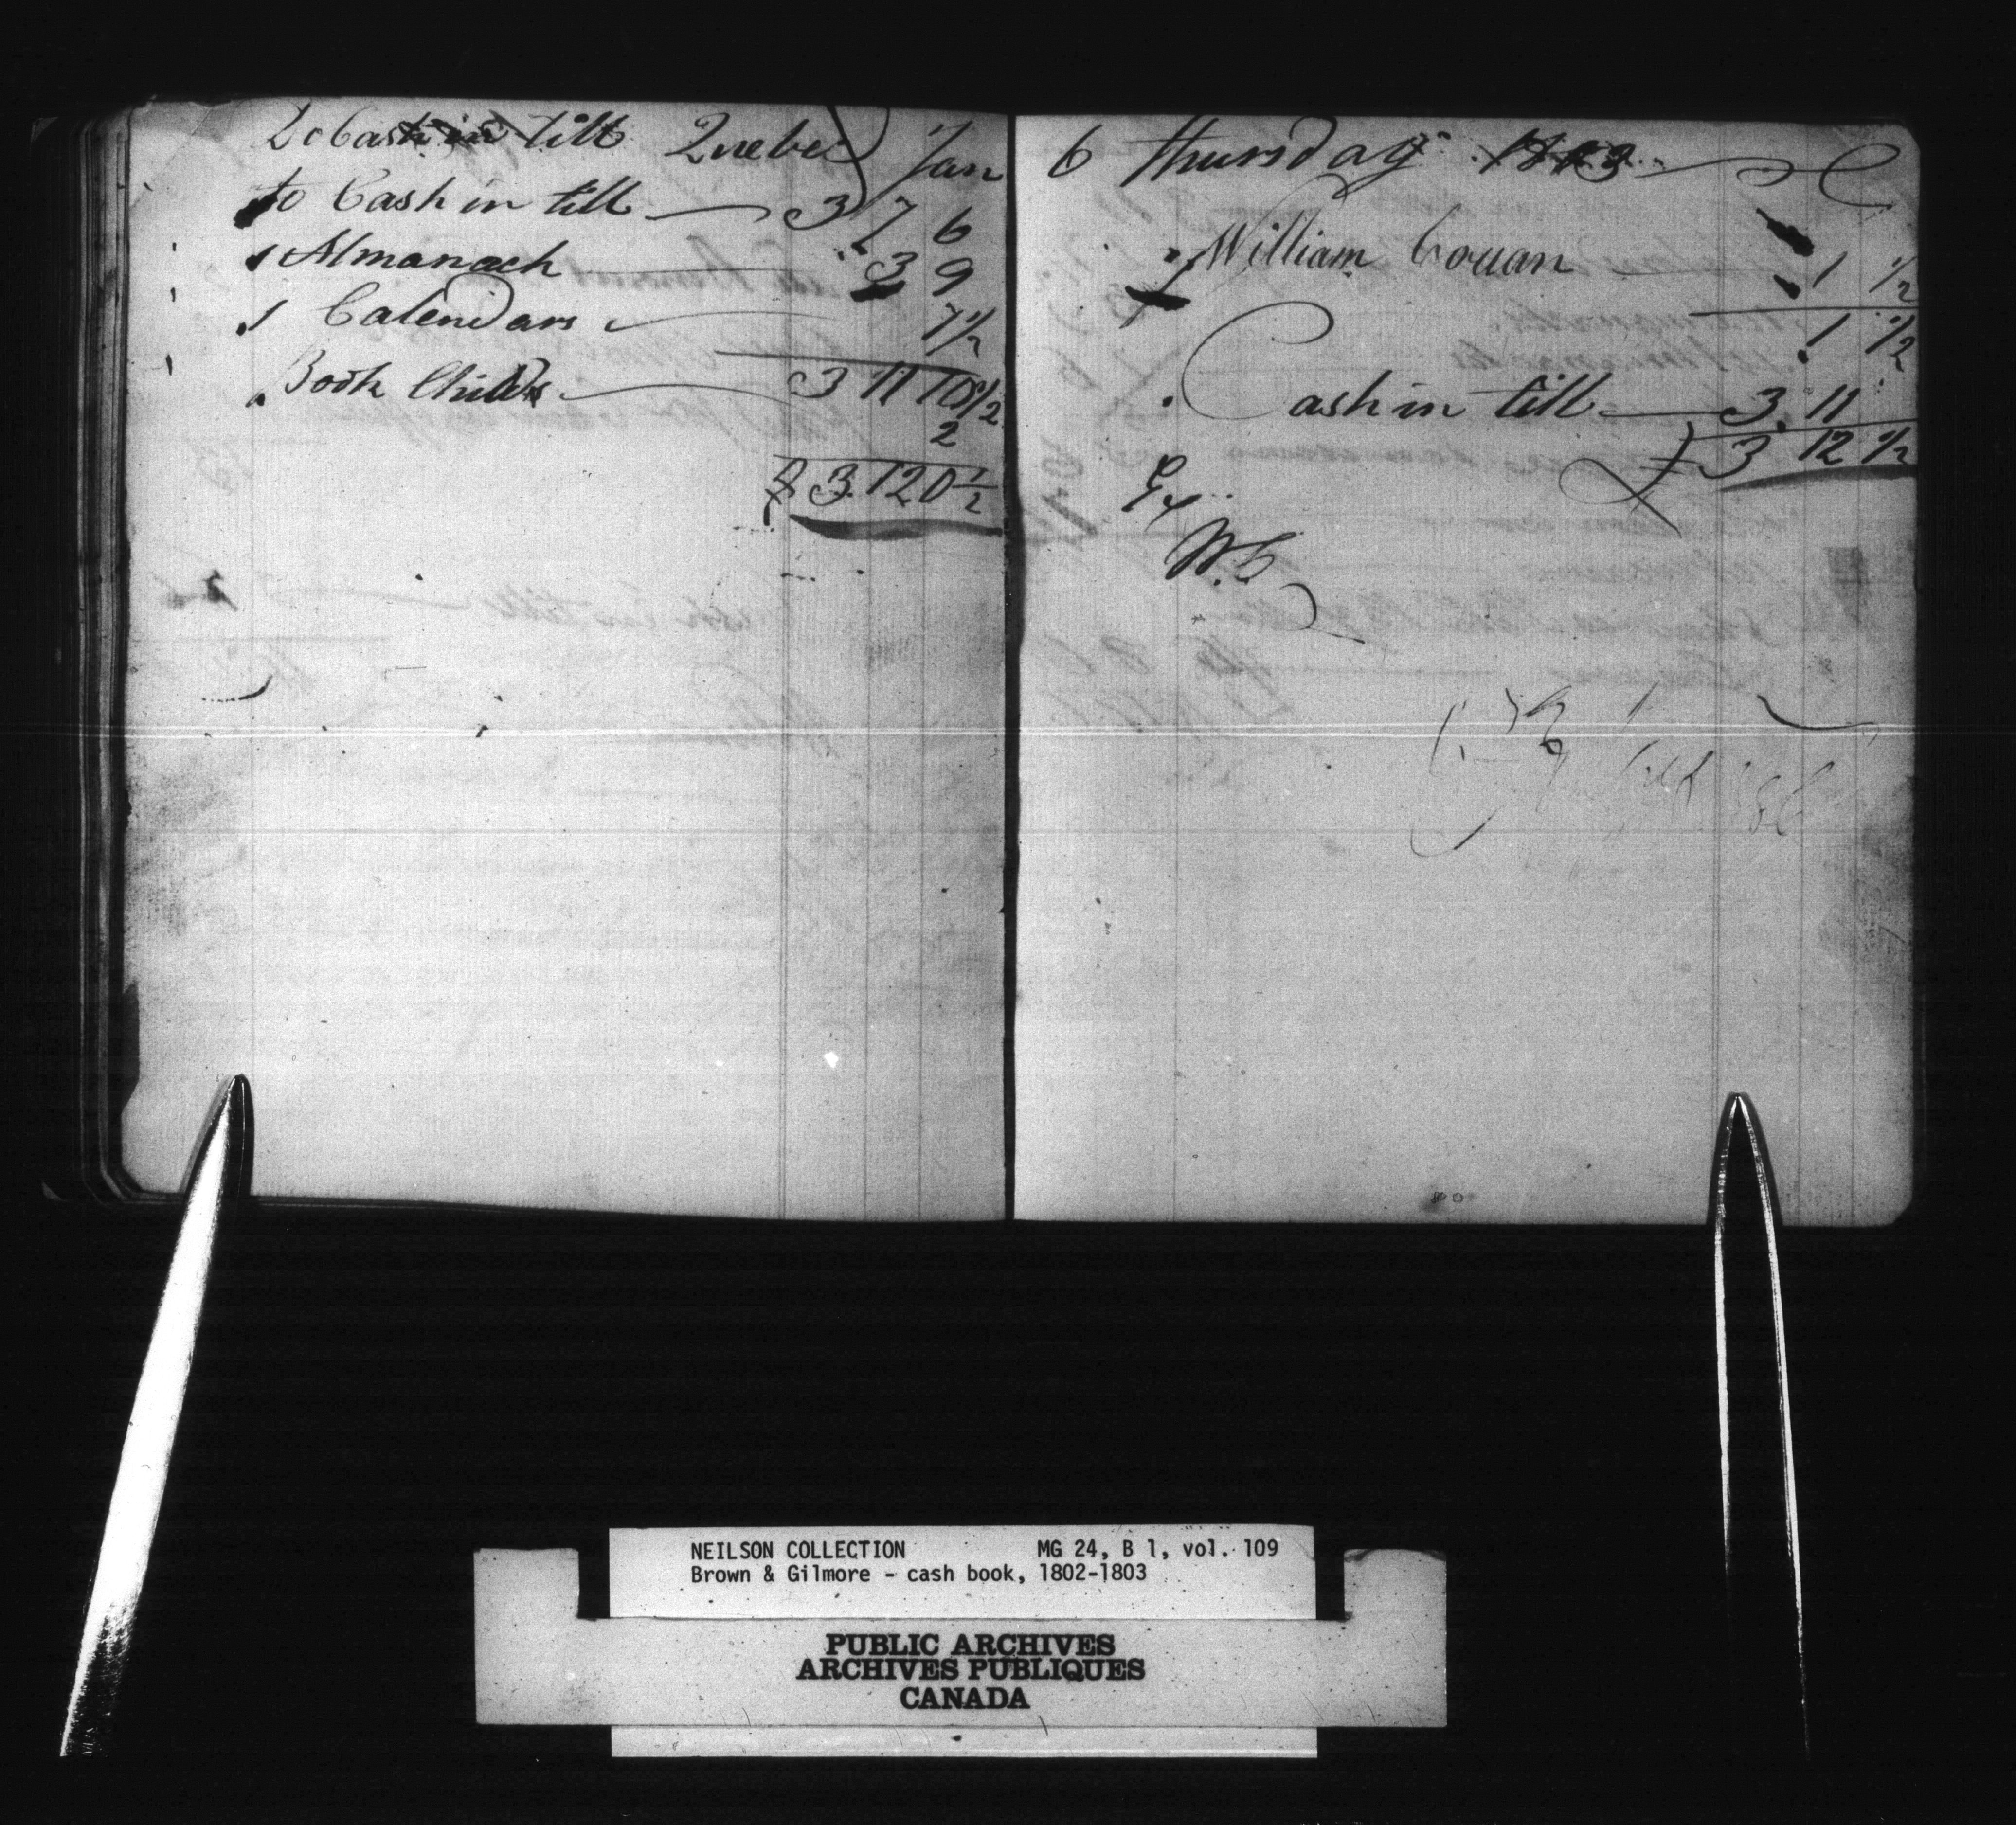 To Cash in till Quebec Jan
to Cash in till 3 7 6
1 Almanach 3 9
1 Calendars 7 1/2
3 11 10 1/2
Book Childs 2
£ 3. 12 0 1/2
6 Thursday 1803
William Couan 1 1/2
1 1/2
Cash in till 3. 11
£ 3 12 1/2
Ex
W.C
NEILSON COLLECTION MG 24, B 1, vol. 109
Brown & Gilmore - cash book, 1802-1803
PUBLIC ARCHIVES
ARCHIVES PUBLIQUES
CANADA